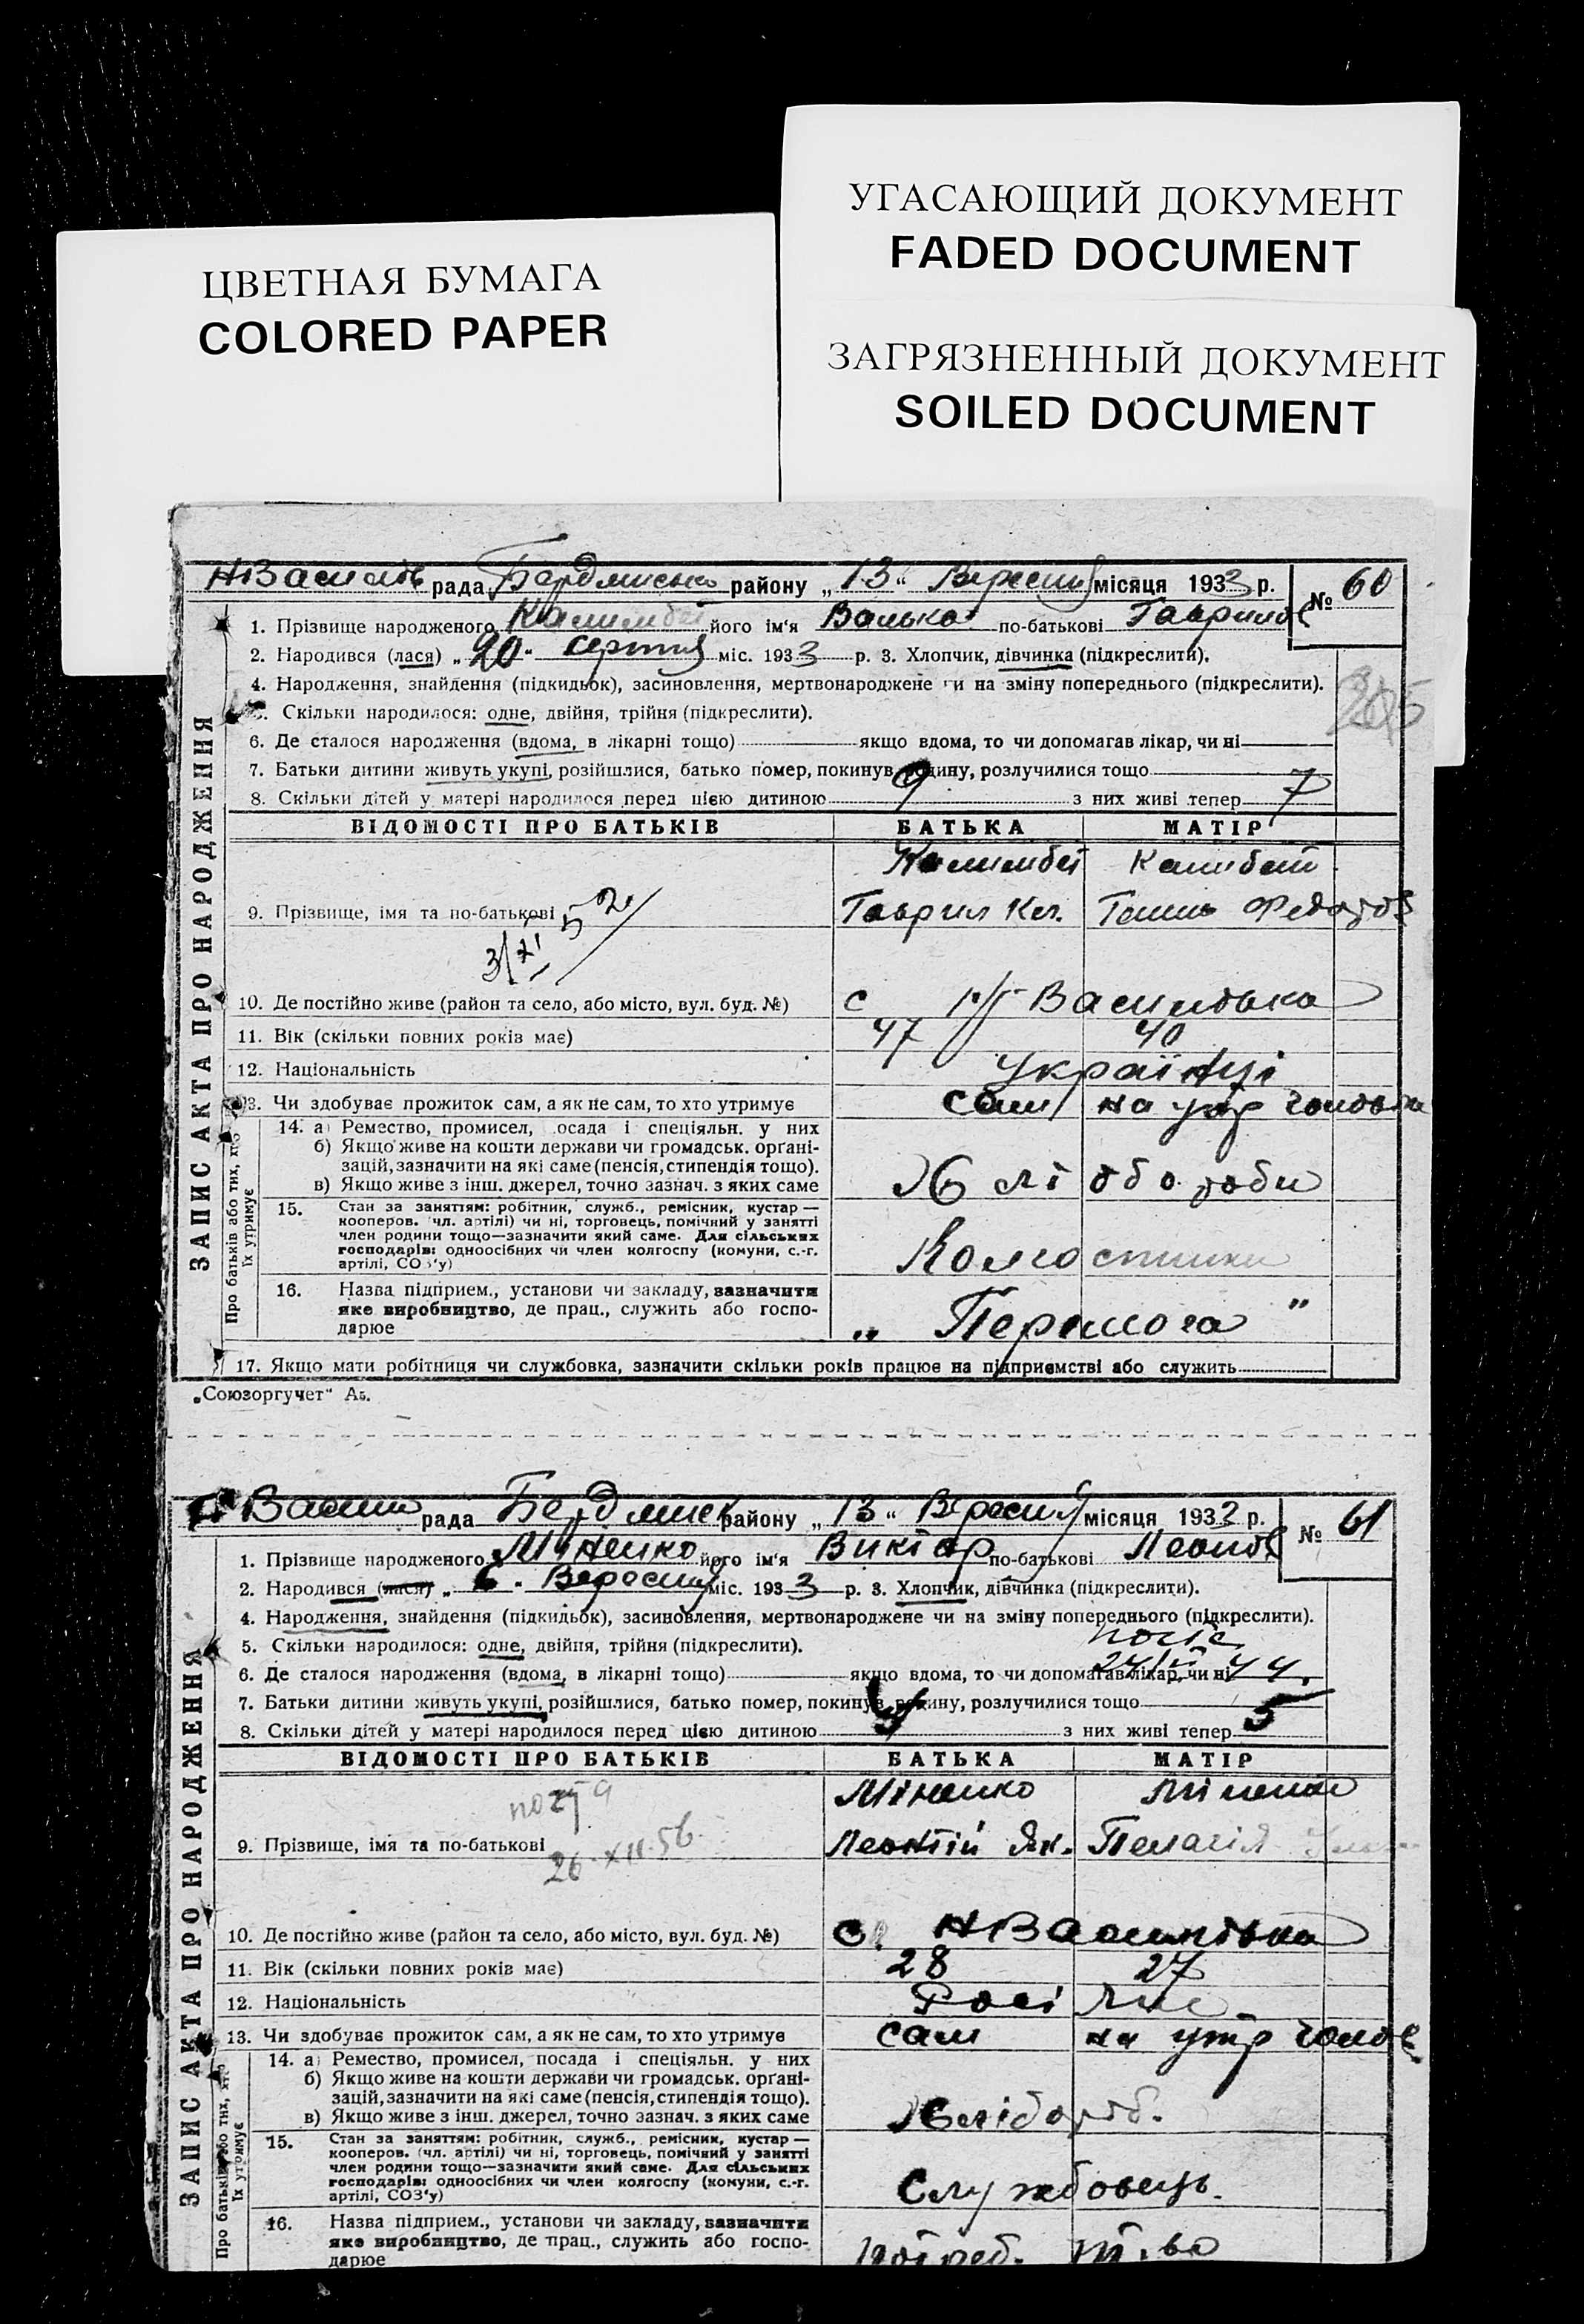 УГАСАЮЩИЙ ДОКУМЕНТ
FADED DOCUMENT
ЦВЕТНАЯ БУМАГА
COLORED PAPER
ЗАГРЯЗНЕННЫЙ ДОКУМЕНТ
SOILED DOCUMENT
рада району „13“ Вересня місяця 1933 р. № 60
1. Прізвище народженого його ім'я Валька по-батькові Гаврилов
2. Народився (лася) „20“ серпня міс. 1933 р. 3. Хлопчик, дівчинка (підкреслити).
4. Народження, знайдення (підкидьок), засиновлення, мертвонароджене чи на зміну попереднього (підкреслити).
5. Скільки народилося: одне, двійня, трійня (підкреслити).
6. Де сталося народження (вдома, в лікарні тощо) якщо вдома, то чи допомагав лікар, чи ні
7. Батьки дитини живуть укупі, розійшлися, батько помер, покинув родину, розлучилися тощо
8. Скільки дітей у матері народилося перед цією дитиною 9 з них живі тепер 7
ВІДОМОСТІ ПРО БАТЬКІВ БАТЬКА МАТІР
9. Прізвище, імя та по-батькові Гаврил
10. Де постійно живе (район та село, або місто, вул. буд. №) с Василівка
11. Вік (скільки повних років має) 47 40
12. Національність Українці
13. Чи здобуває прожиток сам, а як не сам, то хто утримує сам на утр чоловіка
14. а) Ремество, промисел, посада і спеціяльн. у них
б) Якщо живе на кошти держави чи громадськ. організацій, зазначити на які саме (пенсія, стипендія тощо).
в) Якщо живе з інш. джерел, точно зазнач. з яких саме
Хліобороби
15. Стан за заняттям: робітник, служб., ремісник, кустар —
кооперов. (чл. артілі) чи ні, торговець, помічний у занятті
член родини тощо—зазначити який саме. Для сільських
господарів: одноосібних чи член колгоспу (комуни, с.-г.
артілі, СОЗ'у)
Колгоспники
16. Назва підприєм., установи чи закладу, зазначити
яке виробництво, де прац., служить або господарює
„Перемога"
17. Якщо мати робітниця чи службовка, зазначити скільки років працює на підприємстві або служить
ЗАПИС АКТА ПРО НАРОДЖЕННЯ
Про батьків або тих, хто їх утримує
„Союзоргучет" Аз.
рада району „13“ Вересня місяця 1933 р. № 61
1. Прізвище народженого Міненко його ім'я Віктор по-батькові Леонтов
2. Народився (лася) „6“ Вересня міс. 1933 р. 3. Хлопчик, дівчинка (підкреслити).
4. Народження, знайдення (підкидьок), засиновлення, мертвонароджене чи на зміну попереднього (підкреслити).
5. Скільки народилося: одне, двійня, трійня (підкреслити).
6. Де сталося народження (вдома, в лікарні тощо) якщо вдома, то чи допомагав лікар, чи ні
7. Батьки дитини живуть укупі, розійшлися, батько помер, покинув родину, розлучилися тощо
8. Скільки дітей у матері народилося перед цією дитиною з них живі тепер 5
ВІДОМОСТІ ПРО БАТЬКІВ БАТЬКА МАТІР
Міненко Міненко
9. Прізвище, імя та по-батькові Леонтій Як. Пелагія
26.XII.56
10. Де постійно живе (район та село, або місто, вул. буд. №) с. НВасилівка
11. Вік (скільки повних років має) 28 27
12. Національність
13. Чи здобуває прожиток сам, а як не сам, то хто утримує сам на утр чолов
14. а) Ремество, промисел, посада і спеціяльн. у них
б) Якщо живе на кошти держави чи громадськ. організацій, зазначити на які саме (пенсія, стипендія тощо).
в) Якщо живе з інш. джерел, точно зазнач. з яких саме
15. Стан за заняттям: робітник, служб., ремісник, кустар —
кооперов. (чл. артілі) чи ні, торговець, помічний у занятті
член родини тощо—зазначити який саме. Для сільських
господарів: одноосібних чи член колгоспу (комуни, с.-г.
артілі, СОЗ'у)
Службовець.
16. Назва підприєм., установи чи закладу, зазначити
яке виробництво, де прац., служить або господарює
ЗАПИС АКТА ПРО НАРОДЖЕННЯ
Про батьків або тих, хто їх утримує